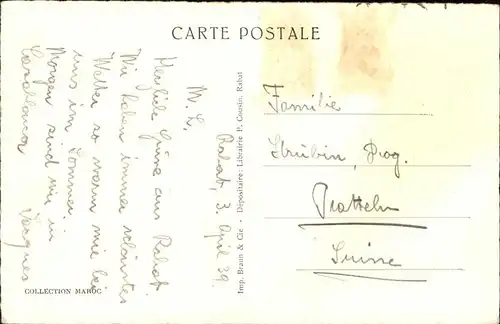 CARTE POSTALE
Rabat, 3. April 39.
M. L.
Herzliche Grüsse aus Rabat.
Wir haben immer schönstes
Wetter so warm wie bei
uns im Sommer.
Morgen sind wir in
Casablanca
Jacques
Imp. Braun & Cie - Dépositaire: Librairie P. Cousin, Rabat
Familie
Strübin, Drog.
Pratteln
Suisse
COLLECTION MAROC